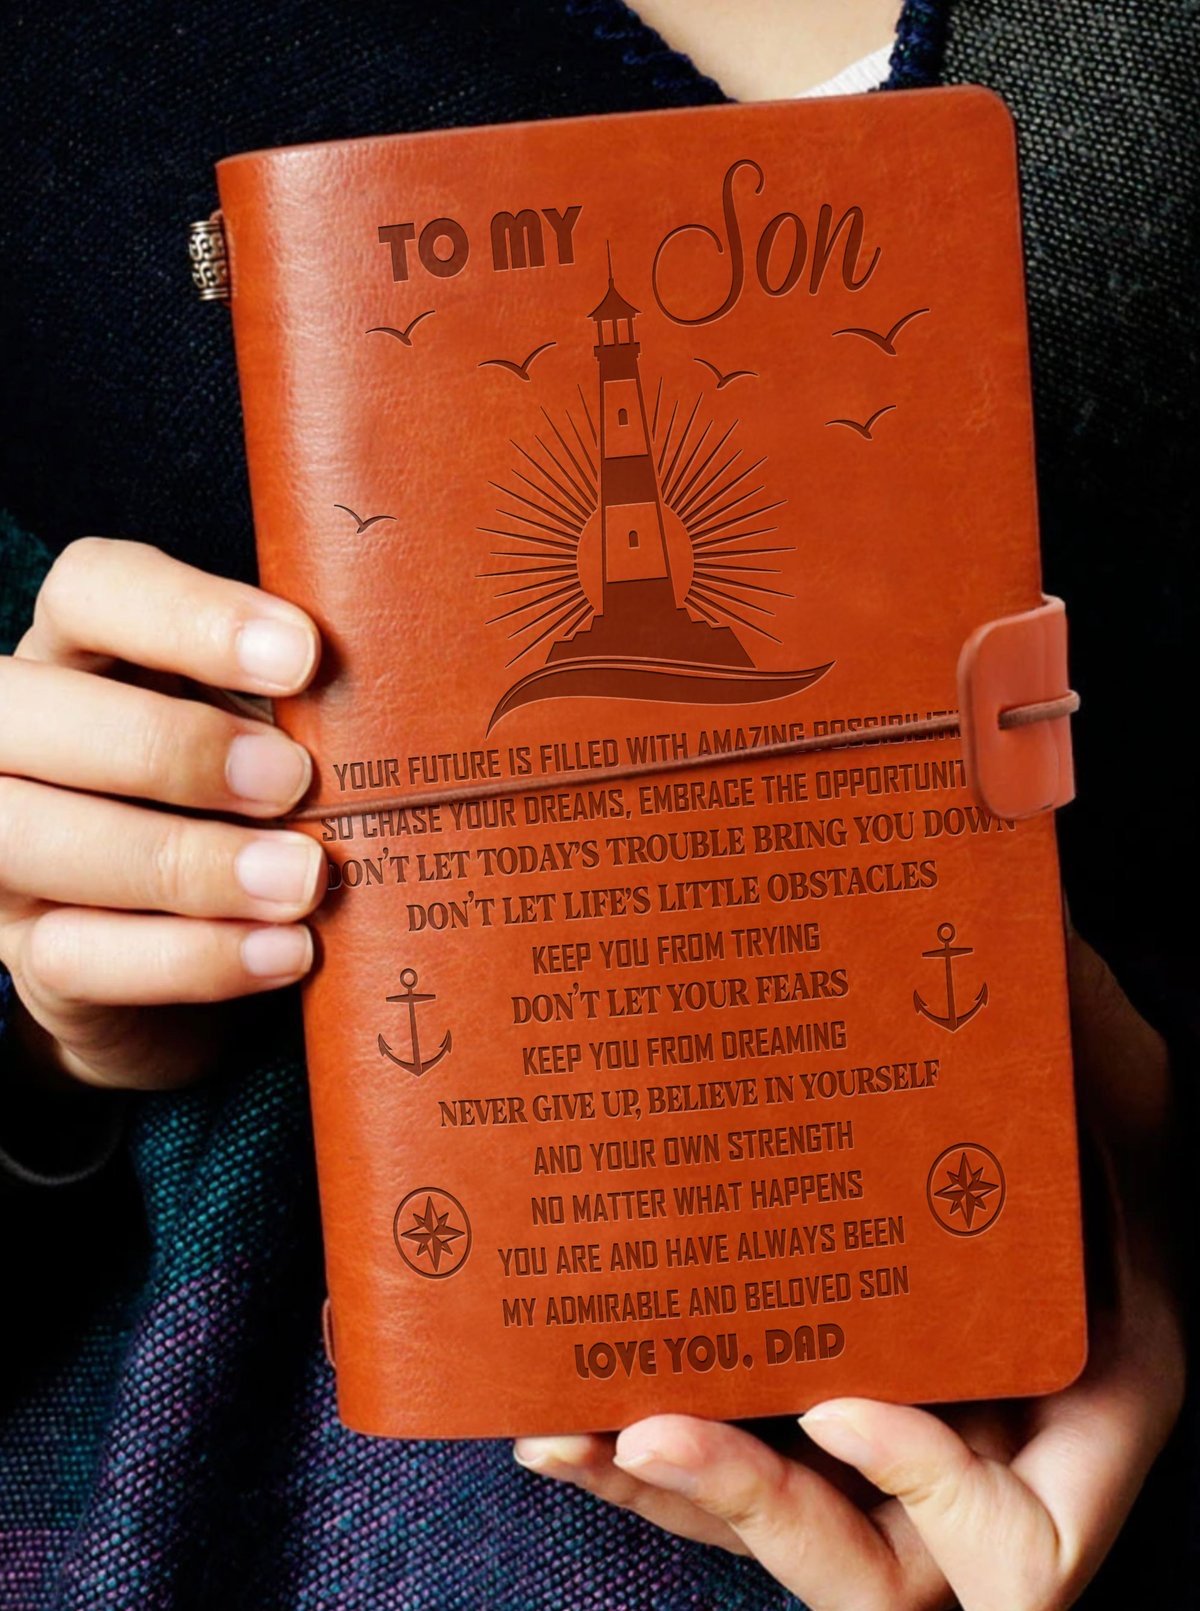 TO MY Son
YOUR FUTURE IS FILLED WITH AMAZING
SO CHASE YOUR DREAMS, EMBRACE THE
DON'T LET TODAY'S TROUBLE BRING YOU DOWN
DON'T LET LIFE'S LITTLE OBSTACLES
KEEP YOU FROM TRYING
DON'T LET YOUR FEARS
KEEP YOU FROM DREAMING
NEVER GIVE UP, BELIEVE IN YOURSELF
AND YOUR OWN STRENGTH
NO MATTER WHAT HAPPENS
YOU ARE AND HAVE ALWAYS BEEN
MY ADMIRABLE AND BELOVED SON
LOVE YOU, DAD